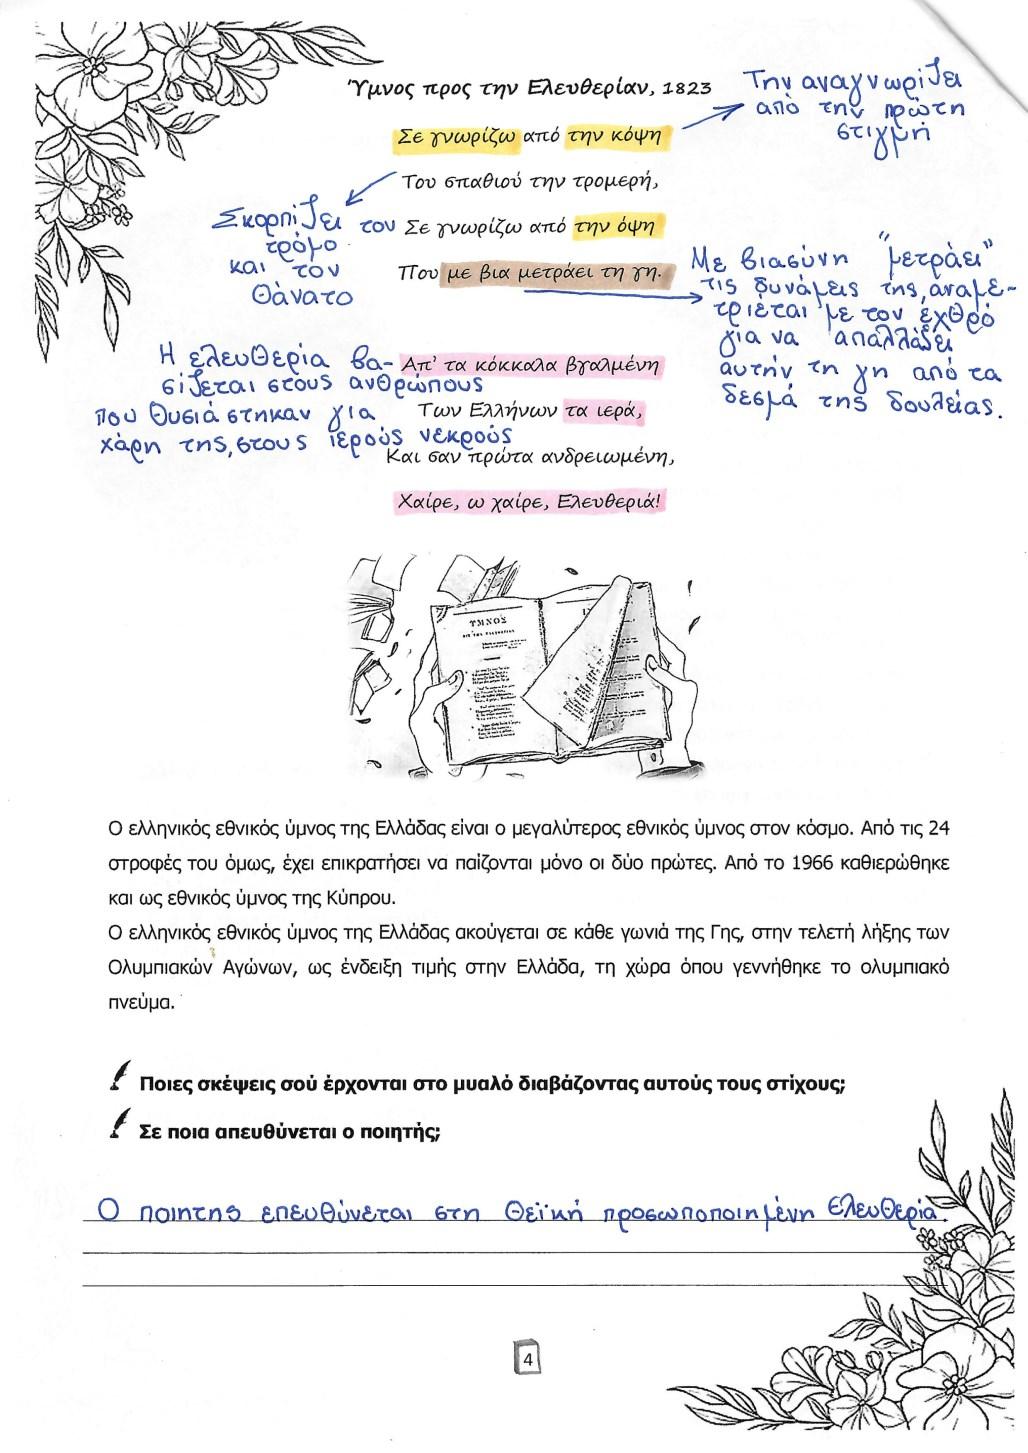 Ύμνος προς την Ελευθερίαν, 1823
Σε γνωρίζω από την κόψη
Του σπαθιού την τρομερή,
Σε γνωρίζω από την όψη
Που με βια μετράει τη γη.
Την αναγνωρίζει
από την πρώτη
στιγμή
Σκορπίζει τον
τρόμο
και τον
θάνατο
Με βιασύνη "μετράει"
τις δυνάμεις της, αναμε-
τριέται με τον έχθρό
για να απαλλάξει
αυτήν τη γη από τα
δεσμά της δουλείας.
Η ελευθερία βα-
σίζεται στους ανθρώπους
που θυσιάστηκαν για
χάρη της, στους ιερούς νεκρούς
Απ' τα κόκκαλα βγαλμένη
Των Ελλήνων τα ιερά,
Και σαν πρώτα ανδρειωμένη,
Χαίρε, ω χαίρε, Ελευθεριά!
ΥΜΝΟΣ
Ο ελληνικός εθνικός ύμνος της Ελλάδας είναι ο μεγαλύτερος εθνικός ύμνος στον κόσμο. Από τις 24
στροφές του όμως, έχει επικρατήσει να παίζονται μόνο οι δύο πρώτες. Από το 1966 καθιερώθηκε
και ως εθνικός ύμνος της Κύπρου.
Ο ελληνικός εθνικός ύμνος της Ελλάδας ακούγεται σε κάθε γωνιά της Γης, στην τελετή λήξης των
Ολυμπιακών Αγώνων, ως ένδειξη τιμής στην Ελλάδα, τη χώρα όπου γεννήθηκε το ολυμπιακό
πνεύμα.
Ποιες σκέψεις σού έρχονται στο μυαλό διαβάζοντας αυτούς τους στίχους;
Σε ποια απευθύνεται ο ποιητής;
Ο ποιητης επευθύνεται στη θεϊκή προσωποποιημένη Ελευθερία.
4